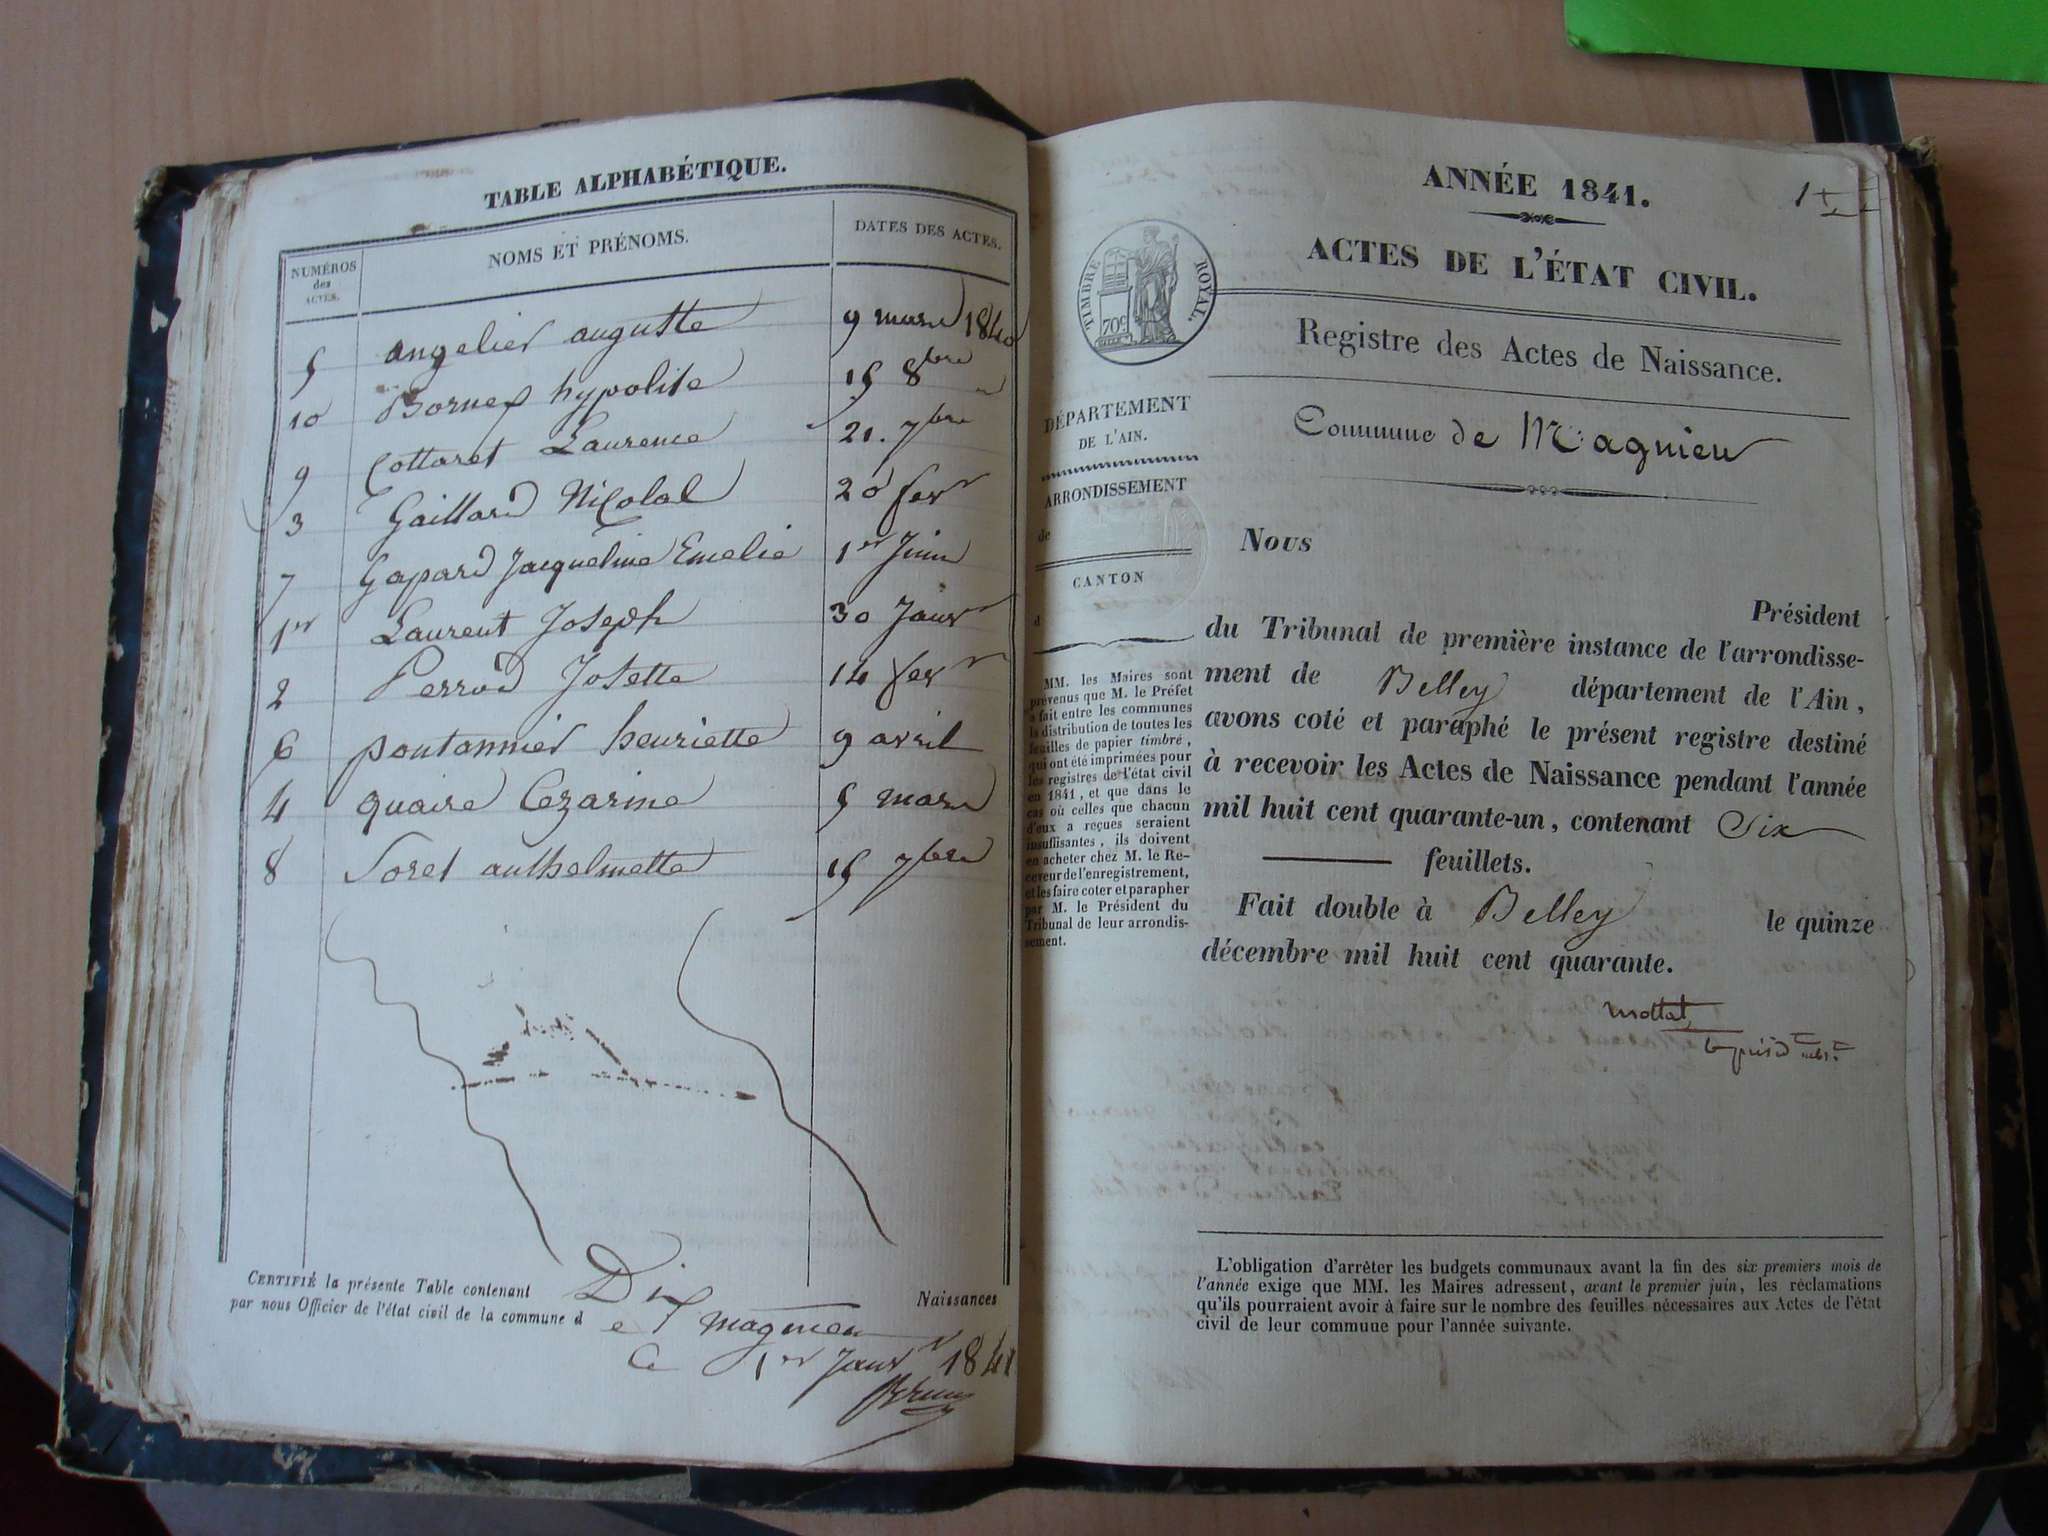 TABLE ALPHABÉTIQUE.
NUMÉROS des ACTES. NOMS ET PRÉNOMS. DATES DES ACTES.
5 angelier auguste 9 mars 1840
10 Bornex hypolite 15 8bre
9 Cottaret Laurence 21. 7bre
3 Gaillard Nicolal 20 fevr
7 Gapard Jacqueline Emelie 1er Juin
1er Laurent Joseph 30 Janvr
2 Perrod Josette 14 fevr
6 pontannier henriette 9 avril
4 quaire Cezarine 5 mars
8 Soret anthelmette 15 7bre
CERTIFIÉ la présente Table contenant Dix Naissances
par nous Officier de l'état civil de la commune de magnieu
Ce 1er Janvr 1841
ANNÉE 1841.
ACTES DE L'ÉTAT CIVIL.
TIMBRE ROYAL.
70c
Registre des Actes de Naissance.
Commune de Magnieu
DÉPARTEMENT
DE L'AIN.
ARRONDISSEMENT
de
CANTON
d
MM. les Maires sont
prévenus que M. le Préfet
a fait entre les communes
la distribution de toutes les
feuilles de papier timbré,
qui ont été imprimées pour
les registres de l'état civil
en 1841, et que dans le
cas où celles que chacun
d'eux a reçues seraient
insuffisantes, ils doivent
en acheter chez M. le Re-
ceveur de l'enregistrement,
et les faire coter et parapher
par M. le Président du
Tribunal de leur arrondis-
sement.
Nous
Président
du Tribunal de première instance de l'arrondisse-
ment de Belley département de l'Ain,
avons coté et paraphé le présent registre destiné
à recevoir les Actes de Naissance pendant l'année
mil huit cent quarante-un, contenant Six
feuillets.
Fait double à Belley le quinze
décembre mil huit cent quarante.
L'obligation d'arrêter les budgets communaux avant la fin des six premiers mois de
l'année exige que MM. les Maires adressent, avant le premier juin, les réclamations
qu'ils pourraient avoir à faire sur le nombre des feuilles nécessaires aux Actes de l'état
civil de leur commune pour l'année suivante.